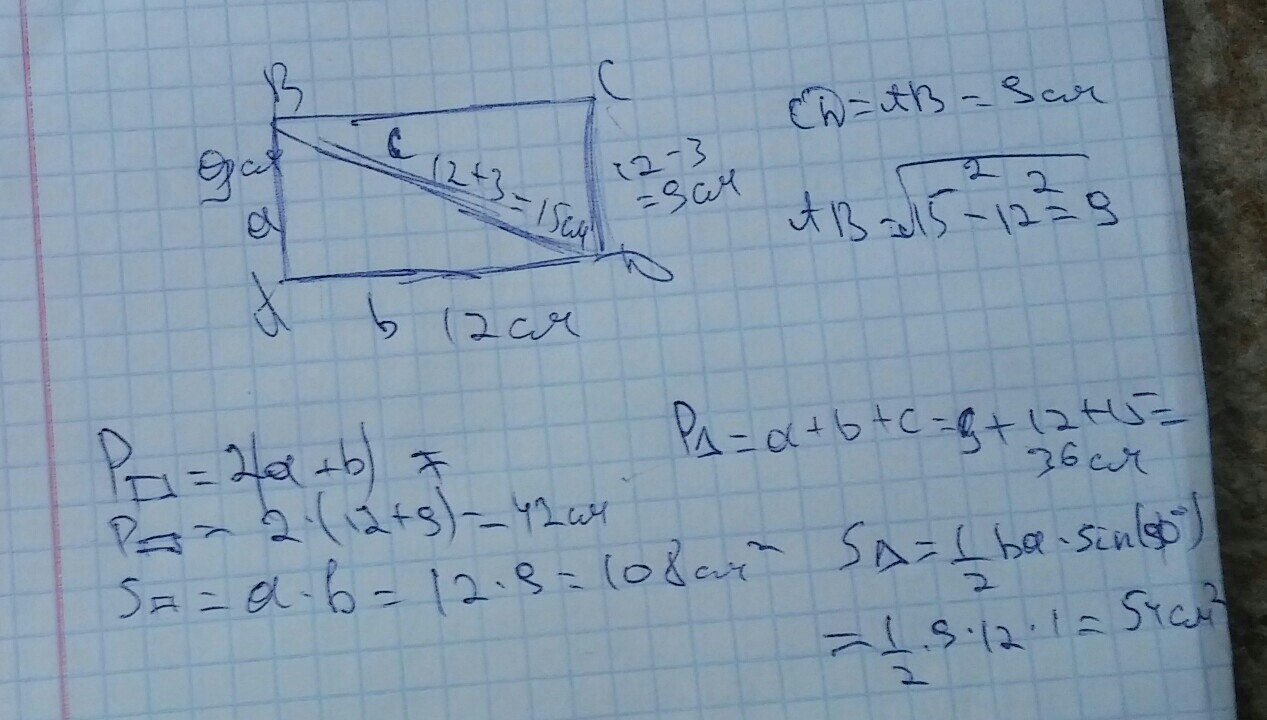 B
C
9см
a
c
12+3=15см
12-3
=9см
A
b 12см
D
CD=AB=9см
AB=√15²-12²=9
P▭=2(a+b) =
P▭= 2·(12+9)=42см
S▭=a·b=12·9=108см²
P△=a+b+c=9+12+15=
36см
S△=1/2 ba·sin(90°)
=1/2·9·12·1=54см²